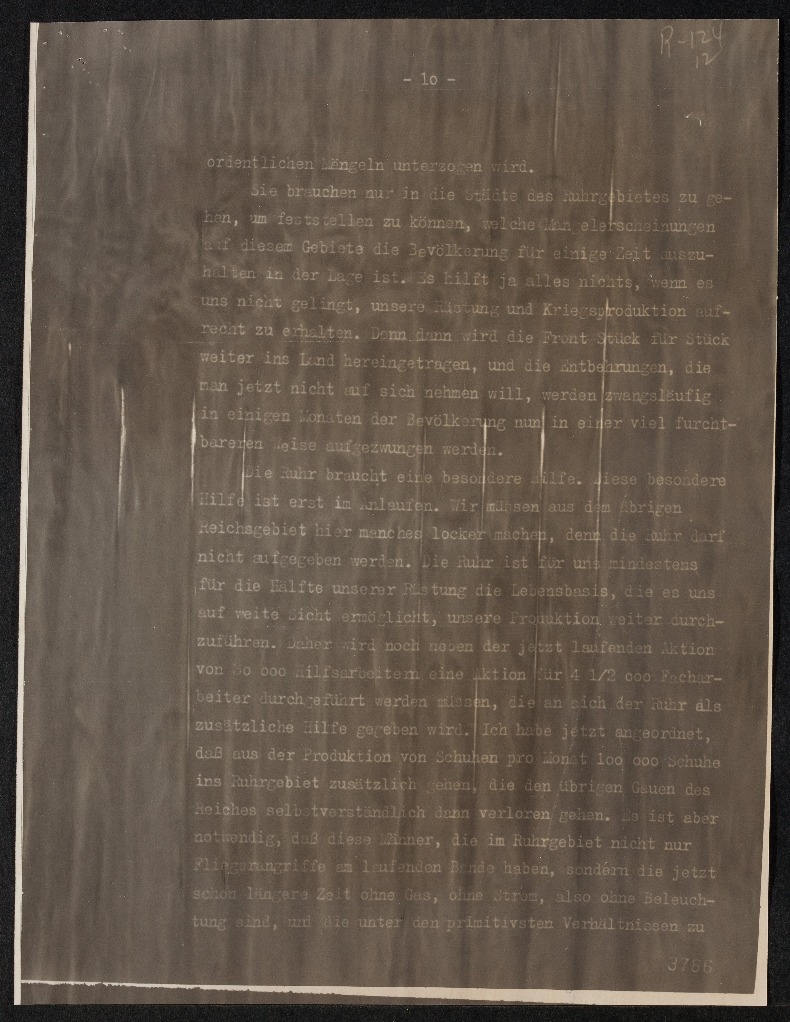 R-124
12
- 1o -
ordentlichen Mängeln unterzogen wird.
Sie brauchen nur in die Städte des Ruhrgebietes zu ge-
hen, um feststellen zu können, welche Mangelerscheinungen
auf diesem Gebiete die Bevölkerung für einige Zeit auszu-
halten in der Lage ist. Es hilft ja alles nichts, wenn es
uns nicht gelingt, unsere Rüstung und Kriegsproduktion auf-
recht zu erhalten. Denn dann wird die Front Stück für Stück
weiter ins Land hereingetragen, und die Entbehrungen, die
man jetzt nicht auf sich nehmen will, werden zwangsläufig
in einigen Monaten der Bevölkerung nun in einer viel furcht-
bareren Weise aufgezwungen werden.
Die Ruhr braucht eine besondere Hilfe. Diese besondere
Hilfe ist erst im Anlaufen. Wir müssen aus dem übrigen
Reichsgebiet hier manches locker machen, denn die Ruhr darf
nicht aufgegeben werden. Die Ruhr ist für uns mindestens
für die Hälfte unserer Rüstung die Lebensbasis, die es uns
auf weite Sicht ermöglicht, unsere Produktion weiter durch-
zuführen. Daher wird noch neben der jetzt laufenden Aktion
von 3o ooo Hilfsarbeitern eine Aktion für 4 1/2 ooo Fachar-
beiter durchgeführt werden müssen, die an sich der Ruhr als
zusätzliche Hilfe gegeben wird. Ich habe jetzt angeordnet,
daß aus der Produktion von Schuhen pro Monat 1oo ooo Schuhe
ins Ruhrgebiet zusätzlich gehen, die den übrigen Gauen des
Reiches selbstverständlich dann verloren gehen. Es ist aber
notwendig, daß diese Männer, die im Ruhrgebiet nicht nur
Fliegerangriffe am laufenden Bande haben, sondern die jetzt
schon längere Zeit ohne Gas, ohne Strom, also ohne Beleuch-
tung sind, und die unter den primitivsten Verhältnissen zu
3766